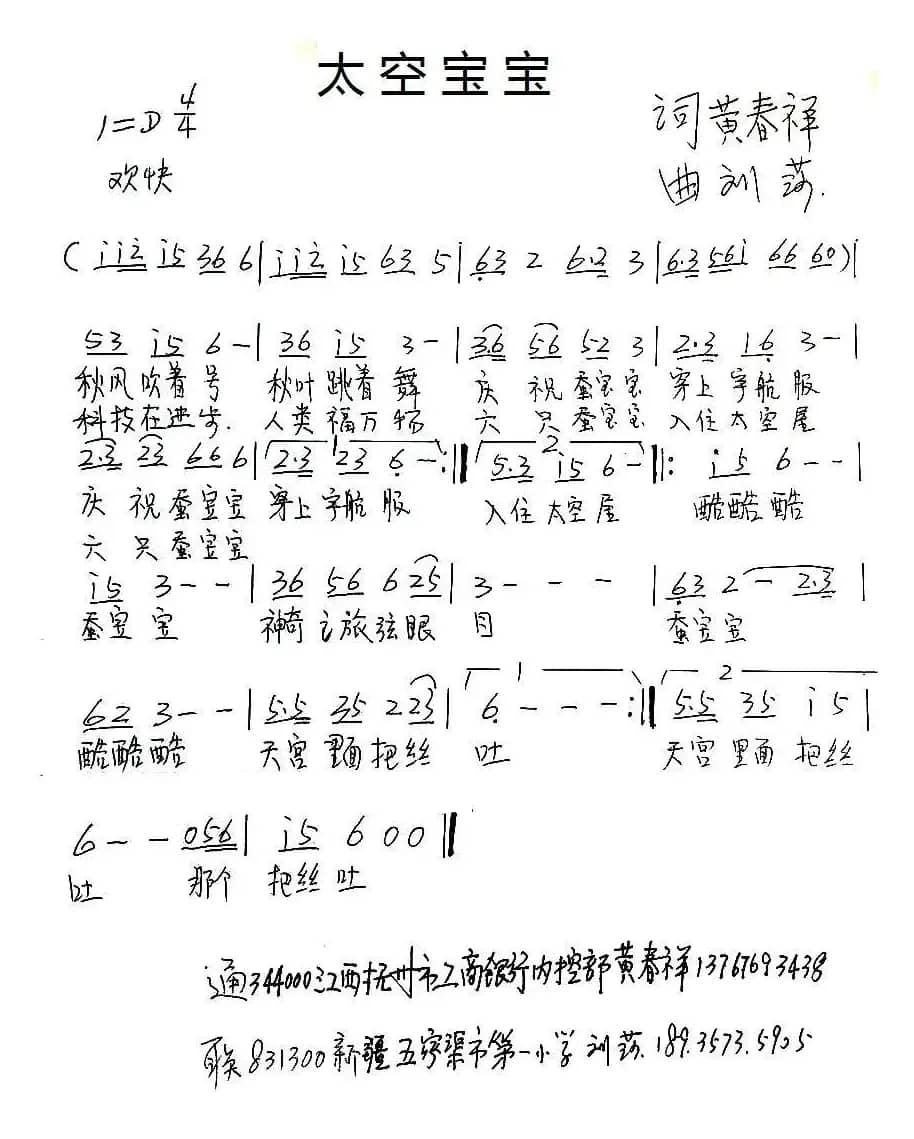 太空宝宝
1=D 4/4
词 黄春祥
欢快
曲 刘
(i i 2 i5 36 6 | i i 2 i5 63 5 | 63 2 6·2 3 | 6·3 56i 66 60) |
53 i5 6 - | 36 i5 3 - | 36 56 52 3 | 2·3 16 3 - |
秋风吹着号 秋叶跳着舞 庆 祝蚕宝宝 穿上宇航服
科技在进步. 人类福万物 六 只蚕宝宝 入住太空屋
2·3 23 66 6 | 1 2·3 23 6 - :‖ 2 5·3 i5 6 - ‖: i5 6 - - |
庆 祝蚕宝宝 穿上宇航服 入住太空屋 酷酷酷
六 只蚕宝宝
i5 3 - - | 36 56 6 25 | 3 - - - | 63 2 - 2·3 |
蚕宝宝 神奇之旅弦眼 目 蚕宝宝
62 3 - - | 5·5 35 2 23 | 1 6 - - - :‖ 2 5·5 35 i 5 |
酷酷酷 天宫里面把丝 吐 天宫里面把丝
6 - - 056 | i5 6 0 0 ‖
吐 那个 把丝吐
通344000江西抚州市工商银行内控部黄春祥13767693438
联831300新疆五家渠市第一小学刘 189.3573.5905